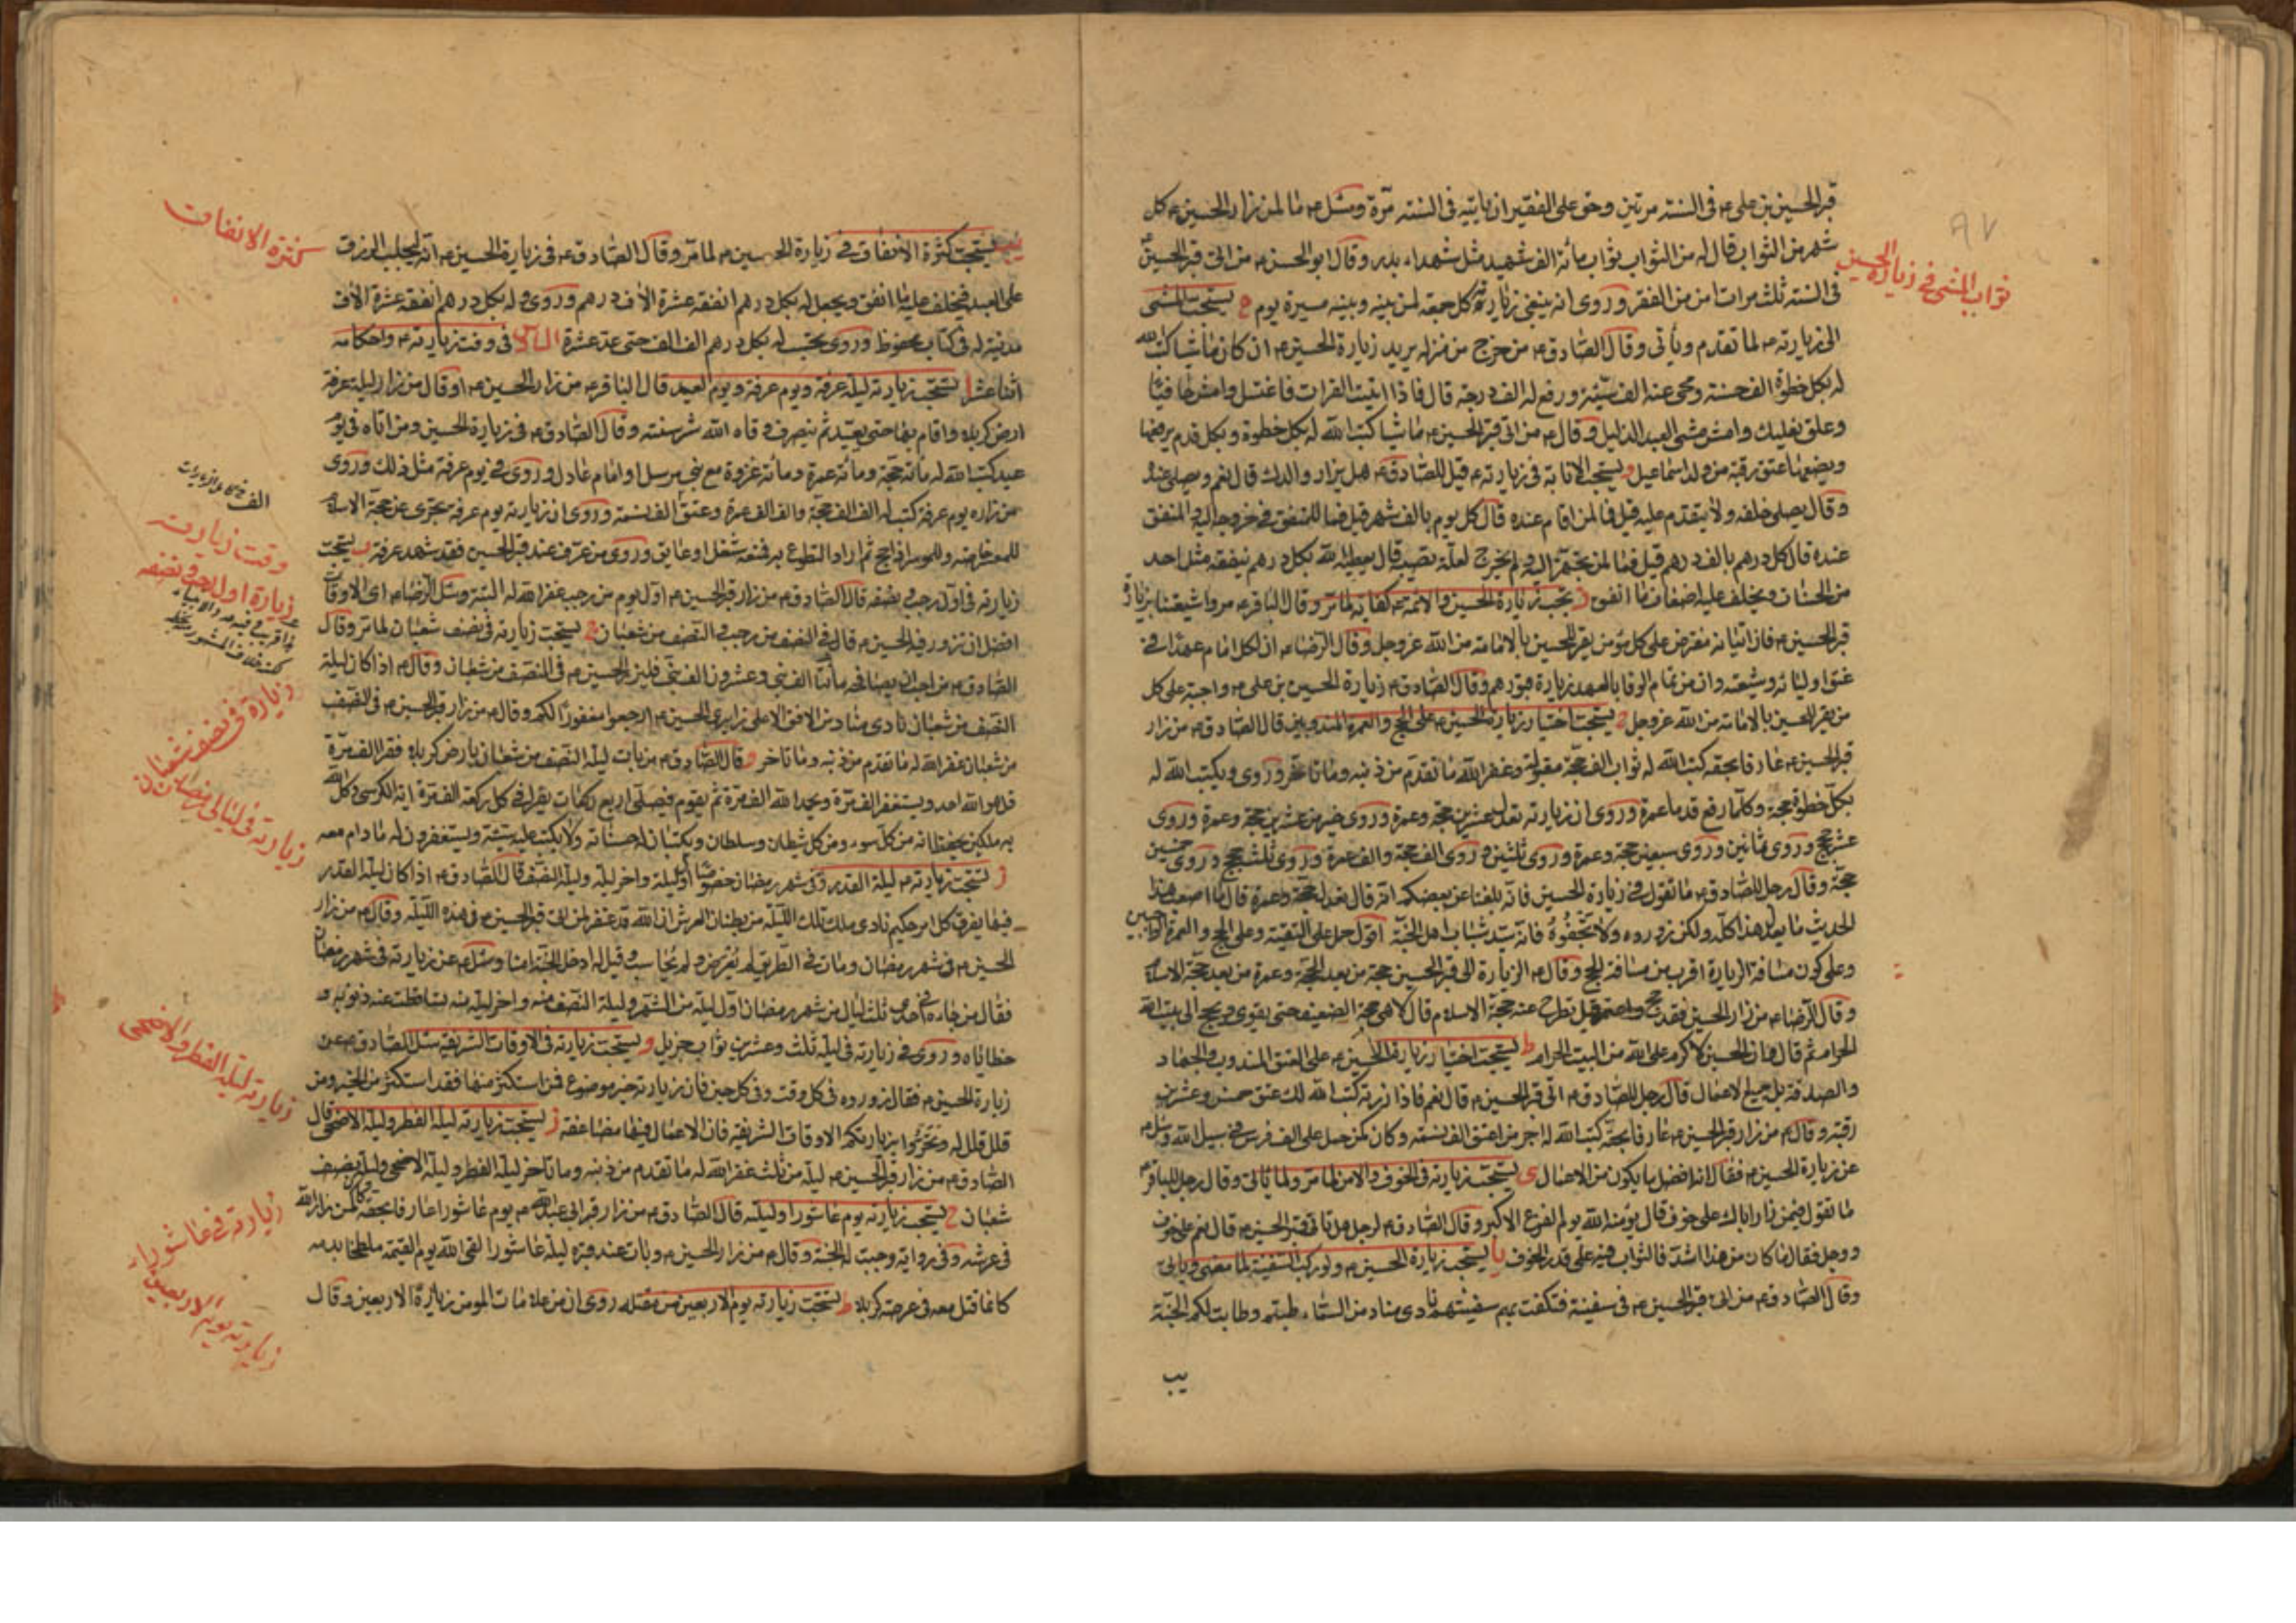 قبر الحسين بن علي ع في السنة مرتين وحق على الفقير ان ياتيه في السنة مرة وسئل ع ما لمن زار الحسين ع كل
شهر من الثواب قال له من الثواب ثواب مائة الف شهيد مثل شهداء بدر وقال ابو الحسن ع من اتى قبر الحسين ع
في السنة ثلث مرات امن من الفقر وروى انه ينبغي زيارته كل جمعة لمن بينه وبينه مسيرة يوم ه يستحب المشي
الى زيارته ع لما تقدم وياتى وقال الصادق ع من خرج من منزله يريد زيارة الحسين ع ان كان ماشيا كتب الله
له بكل خطوة الف حسنة ومحى عنه الف سيئة ورفع له الف درجة قال فاذا اتيت الفرات فاغتسل وامش حافيا
وعلق نعليك وامش مشى العبد الذليل وقال ع من اتى قبر الحسين ع ماشيا كتب الله له بكل خطوة وبكل قدم يرفعها
ويضعها عتق رقبة من ولد اسماعيل و يستحب الانابة في زيارته ع قيل للصادق ع هل يزار والدك قال نعم ويصلى عنده
وقال يصلى خلفه ولا يتقدم عليه قيل فما لمن اقام عنده قال كل يوم بالف شهر قيل فما للمنفق في خروجه اليه والمنفق
عنده قال كل درهم بالف درهم قيل فما لمن تجهز اليه ولم يخرج لعلة تصيبه قال يعطيه الله بكل درهم ينفقه مثل احد
من الحسنات ويخلف عليه اضعاف ما انفق ز يجب زيارة الحسين والائمة ع كفاية لما مر وقال الباقر ع مروا شيعتنا بزيارة
قبر الحسين ع فان اتيانه مفترض على كل مؤمن يقر للحسين بالامامة من الله عز وجل وقال الرضا ع ان لكل امام عهدا في
عنق اوليائه وشيعته وان من تمام الوفا بالعهد زيارة قبورهم وقال الصادق ع زيارة الحسين بن علي ع واجبة على كل
من يقر للحسين بالامامة من الله عز وجل ح يستحب اختيار زيارة الحسين ع على الحج والعمرة المندوبين قال الصادق ع من زار
قبر الحسين ع عارفا بحقه كتب الله له ثواب الف حجة مقبولة وغفر الله له ما تقدم من ذنبه وما تاخر وروى ويكتب الله له
بكل خطوة حجة وكلما رفع قدما عمرة وروى ان زيارته تعدل عشرين حجة وعمرة وروى خير من عشرين حجة وعمرة وروى
عشر حجج وروى ثمانين وروى سبعين حجة وعمرة وروى ثلثين وروى الف حجة والف عمرة وروى ثلث حجج وروى خمسين
حجة وقال رجل للصادق ع ما تقول في زيارة الحسين فانه بلغنا عن بعضكم انه قال تعدل حجة وعمرة قال ما اصعب هذا
الحديث ما يعدل هذا كله ولكن زوروه ولا تجفوه فانه سيد شباب اهل الجنة اقول حمل على التقية وعلى الحج والعمرة الواجبين
وعلى كون مسافة الزيارة اقرب من مسافة الحج وقال ع الزيارة الى قبر الحسين حجة من بعد الحجة وعمرة من بعد حجة الاسلام
وقال الرضا ع من زار الحسين فقد حج واعتمر قيل تطرح عنه حجة الاسلام قال لا هى حجة الضعيف حتى يقوى ويحج الى بيت الله
الحرام ثم قال ان الحسين لاكرم على الله من البيت الحرام ط يستحب اختيار زيارة الحسين ع على العتق المندوب والجهاد
والصدقة بل جميع الاعمال قال رجل للصادق ع اتى قبر الحسين ع قال نعم فاذا زرته كتب الله لك عتق خمس وعشرين
رقبة وقال ع من زار قبر الحسين ع عارفا بحقه كتب الله له اجر من اعتق الف نسمة وكان كمن حمل على الف فرس في سبيل الله وسئل ع
عن زيارة الحسين ع فقال انه افضل ما يكون من الاعمال ى يستحب زيارته في الخوف والامن لما مر ولما ياتى وقال رجل للباقر ع
ما تقول فيمن زار اباك على خوف قال يؤمنه الله يوم الفزع الاكبر وقال الصادق ع لرجل هل تاتى قبر الحسين ع قال نعم على خوف
ووجل فقال ما كان من هذا اشد فالثواب فيه على قدر الخوف يا يستحب زيارة الحسين ع ولو ركب السفينة لما مضى وياتى
وقال الصادق ع من اتى قبر الحسين ع في سفينة فتكفت بهم سفينتهم نادى مناد من السماء طبتم وطابت لكم الجنة
يب
ثواب المشى في زيارة الحسين
٨٧
يب يستحب كثرة الانفاق في زيارة الحسين ع لما مر وقال الصادق ع في زيارة الحسين ع انه يجلب الرزق
على العبد فيخلف عليه ما انفق ويجعل له بكل درهم انفقه عشرة الاف درهم وروى وله بكل درهم انفقه عشرة الاف
مدينة له في كتاب محفوظ وروى يحسب له بكل درهم الف الف حتى عد عشرة السادس في وقت زيارته ع واحكامه
اثنا عشر ا يستحب زيارته ليلة عرفة ويوم عرفة ويوم العيد قال الباقر ع من زار الحسين ع او قال من زار ليلة عرفة
ارض كربلاء واقام بها حتى يعيد ثم ينصرف وقاه الله شر سنته وقال الصادق ع في زيارة الحسين ومن اتاه في يوم
عيد كتب الله له مائة حجة ومائة عمرة ومائة غزوة مع نبي مرسل او امام عادل وروى في يوم عرفة مثل ذلك وروى
من زاره يوم عرفة كتب له الف الف حجة والف الف عمرة وعتق الف نسمة وروى ان زيارته يوم عرفة تجزى عن حجة الاسلام
زيارته في اول رجب ونصفه قال الصادق ع من زار قبر الحسين ع اول يوم من رجب غفر الله له البتة وسئل الرضا ع اى الاوقات
افضل ان نزور فيه الحسين ع قال في النصف من رجب والنصف من شعبان ج يستحب زيارته في نصف شعبان لما مر وقال
الصادق ع من احب ان يصافحه مائتا الف نبي وعشرون الف نبي فليزر الحسين ع في النصف من شعبان وقال ع اذا كان ليلة
النصف من شعبان نادى مناد من الافق الاعلى زايرى الحسين ع ارجعوا مغفورا لكم وقال ع من زار قبر الحسين ع في النصف
من شعبان غفر الله له ما تقدم من ذنبه وما تاخر وقال الصادق ع من بات ليلة النصف من شعبان بارض كربلاء فقرا الف مرة
قل هو الله احد ويستغفر الف مرة ويحمد الله الف مرة ثم يقوم فيصلى اربع ركعات يقرا في كل ركعة الف مرة اية الكرسى وكل الله
به ملكين يحفظانه من كل سوء ومن كل شيطان وسلطان ويكتبان له حسناته ولا يكتب عليه سيئة ويستغفرون له ما دام معه
يستحب زيارته ع ليلة القدر وفى شهر رمضان خصوصا اول ليلة واخر ليلة وليلة النصف قال الصادق ع اذا كان ليلة القدر
فيها يفرق كل امر حكيم نادى ملك تلك الليلة من بطنان العرش ان الله قد غفر لمن اتى قبر الحسين ع في هذه الليلة وقال ع من زار
الحسين ع في شهر رمضان ومات في الطريق لم يعرض ولم يحاسب وقيل له ادخل الجنة امنا وسئل ع عن زيارته في شهر رمضان
فقال من جاءه في احدى ثلث ليال من شهر رمضان اول ليلة من الشهر وليلة النصف منه واخر ليلة منه تساقطت عنه ذنوبه و
خطاياه وروى في زيارته في ليلة ثلث وعشرين ثواب جزيل و يستحب زيارته في الاوقات الشريفة سئل الصادق ع عن
زيارة الحسين ع فقال زوروه في كل وقت وفى كل حين فان زيارته خير موضوع فمن استكثر منها فقد استكثر من الخير ومن
قلل قلل له وتحروا بزيارتكم الاوقات الشريفة فان الاعمال فيها مضاعفة ز يستحب زيارته ليلة الفطر وليلة الاضحى قال
الصادق ع من زار قبر الحسين ع ليلة من ثلث غفر الله له ما تقدم من ذنبه وما تاخر ليلة الفطر وليلة الاضحى وليلة نصف
شعبان ح يستحب زيارته يوم عاشورا وليلته قال الصادق ع من زار قبر ابى عبد الله ع يوم عاشورا عارفا بحقه كان كمن زار الله
في عرشه وفى رواية وجبت له الجنة وقال ع من زار الحسين ع وبات عند قبره ليلة عاشورا لقى الله يوم القيمة ملطخا بدمه
كانما قتل معه في عرصة كربلا ط يستحب زيارته يوم الاربعين من مقتله روى ان من علامات المومن زيارة الاربعين وقال
كثرة الانفاق
وقت زيارته
زيارة اول رجب ونصفه
زيارة في نصف شعبان
زيارته في ليالى رمضان
زيارته ليلة الفطر والاضحى
زيارته في عاشوراء
زيارته يوم الاربعين